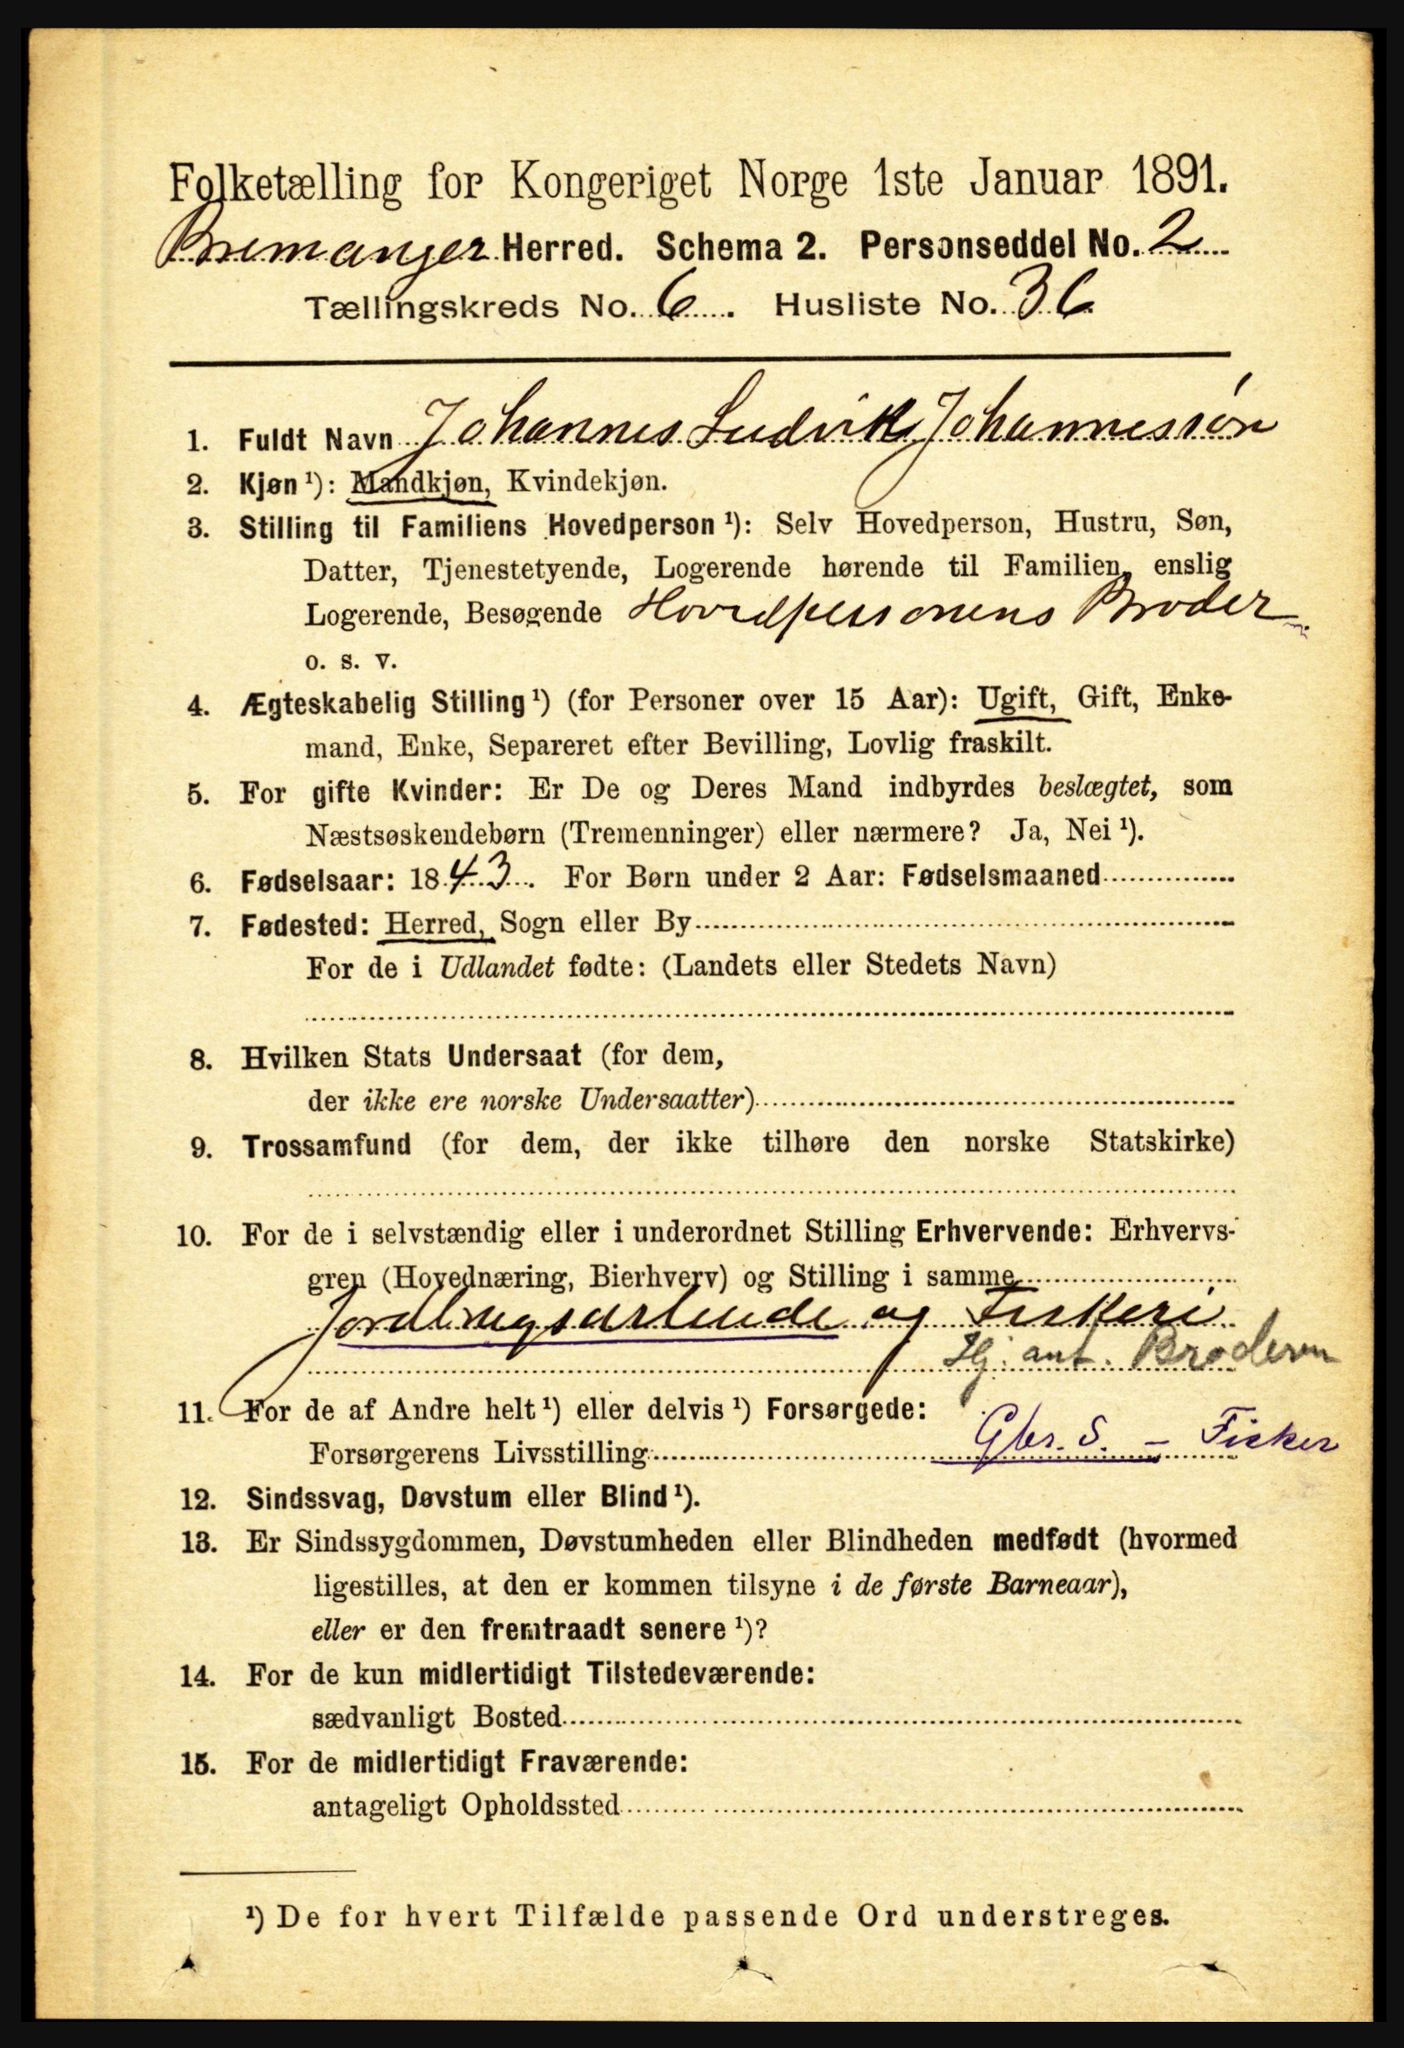 Folketælling for Kongeriget Norge 1ste Januar 1891.
Bremanger Herred. Schema 2. Personseddel No. 2
Tællingskreds No. 6. Husliste No. 36
1. Fuldt Navn Johannes Ludvik Johannessøn
2. Kjøn ¹): Mandkjøn, Kvindekjøn.
3. Stilling til Familiens Hovedperson ¹): Selv Hovedperson, Hustru, Søn,
Datter, Tjenestetyende, Logerende hørende til Familien, enslig
Logerende, Besøgende Hovedpersonens Broder
o. s. v.
4. Ægteskabelig Stilling ¹) (for Personer over 15 Aar): Ugift, Gift, Enke-
mand, Enke, Separeret efter Bevilling, Lovlig fraskilt.
5. For gifte Kvinder: Er De og Deres Mand indbyrdes beslægtet, som
Næstsøskendebørn (Tremenninger) eller nærmere? Ja, Nei ¹).
6. Fødselsaar: 1843. For Børn under 2 Aar: Fødselsmaaned
7. Fødested: Herred, Sogn eller By
For de i Udlandet fødte: (Landets eller Stedets Navn)
8. Hvilken Stats Undersaat (for dem,
der ikke ere norske Undersaatter)
9. Trossamfund (for dem, der ikke tilhøre den norske Statskirke)
10. For de i selvstændig eller i underordnet Stilling Erhvervende: Erhvervs-
gren (Hovednæring, Bierhverv) og Stilling i samme
Jordbrugsarbeide og Fiskeri
Hj. ant. Broderen
11. For de af Andre helt ¹) eller delvis ¹) Forsørgede:
Forsørgerens Livsstilling Gbr. S. - Fisker
12. Sindssvag, Døvstum eller Blind ¹).
13. Er Sindssygdommen, Døvstumheden eller Blindheden medfødt (hvormed
ligestilles, at den er kommen tilsyne i de første Barneaar),
eller er den fremtraadt senere ¹)?
14. For de kun midlertidigt Tilstedeværende:
sædvanligt Bosted
15. For de midlertidigt Fraværende:
antageligt Opholdssted
¹) De for hvert Tilfælde passende Ord understreges.